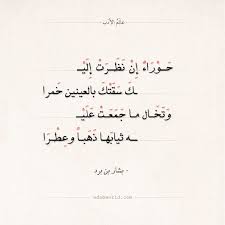 عالم الأدب
حَوْرَاءُ إِنْ نَظَرَتْ إِلَيْـ
ـكَ سَقَتْكَ بالعينين خمرا
وَتَخَال ما جَمَعَتْ عَلَيْـ
ـه ثيابَها ذَهَباً وعِطْرَا
- بشار بن برد -
adabworld.com